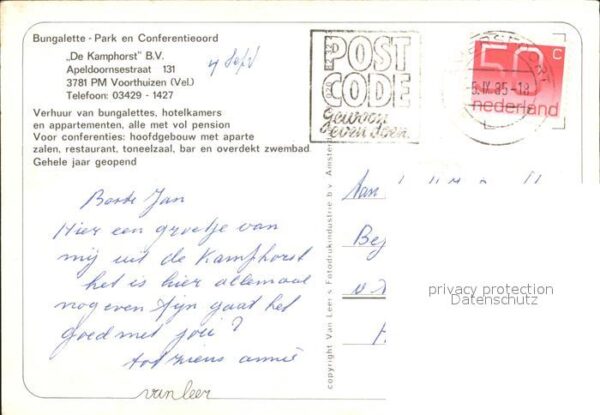 Bungalette - Park en Conferentieoord
„De Kamphorst" B.V.
Apeldoornsestraat 131
3781 PM Voorthuizen (Vel.)
Telefoon: 03429 - 1427
Verhuur van bungalettes, hotelkamers
en appartementen, alle met vol pension
Voor conferenties: hoofdgebouw met aparte
zalen, restaurant, toneelzaal, bar en overdekt zwembad
Gehele jaar geopend
4 Sept
POST
CODE
Gewoon
even doen
50 c
nederland
5.IX.85-18
Beste Jan
Hier een groetje van
mij uit de Kamphorst
het is hier allemaal
nog even fijn gaat het
goed met jou?
tot ziens annie
van leer
copyright Van Leer's Fotodrukindustrie b.v. Amsterdam
Aan
privacy protection
Datenschutz